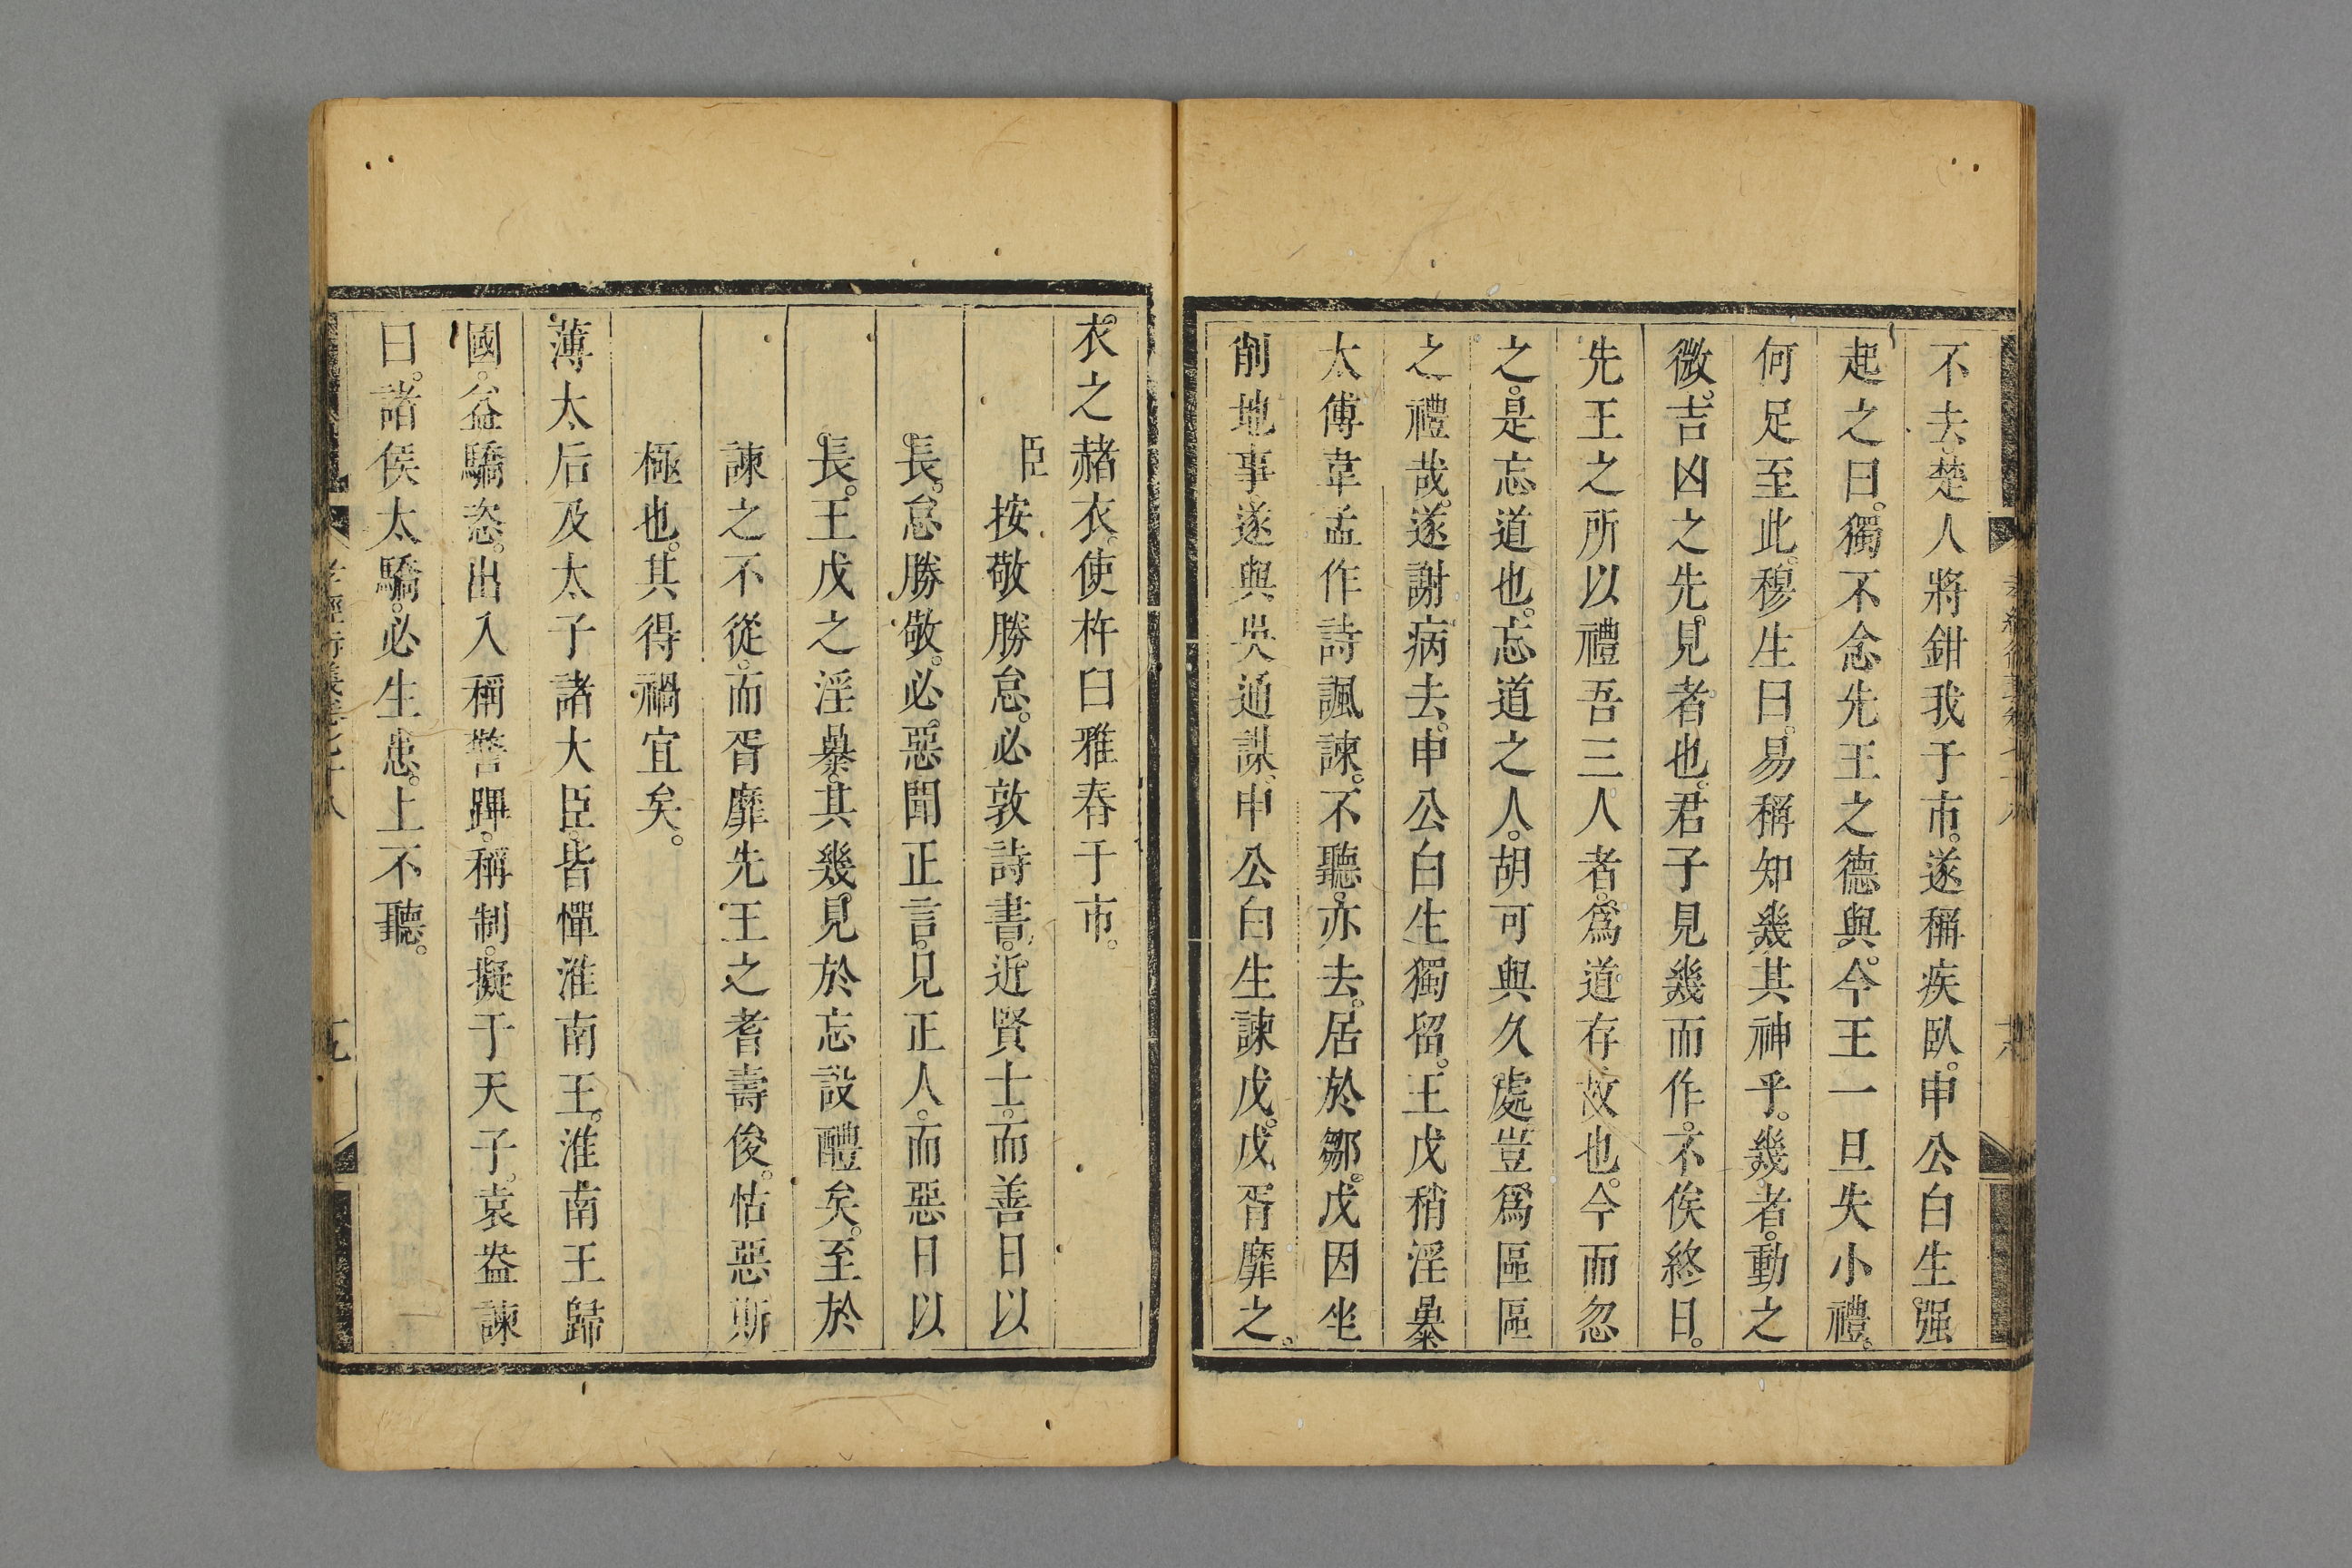 不去。楚人將鉗我于市。遂稱疾臥。申公白生。强
起之曰。獨不念先王之德與。今王一旦失小禮。
何足至此。穆生曰。易稱知幾其神乎。幾者。動之
微。吉凶之先。見者也。君子見幾而作。不俟終日。
先王之所以禮吾三人者。爲道存故也。今而忽
之。是忘道也。忘道之人。胡可與久處。豈爲區區
之禮哉。遂謝病去。申公白生獨留。王戊稍淫暴
太傅韋孟作詩諷諫。不聽。亦去。居於鄒。戊因坐
削地事。遂與吳通謀。申公白生諫戊。戊胥靡之。
衣之赭衣。使杵臼雅舂于市。
臣按敬勝怠。必敦詩書。近賢士。而善日以
長。怠勝敬。必惡聞正言。見正人。而惡日以
長。王戊之淫暴。其幾見於忘設醴矣。至於
諫之不從。而胥靡先王之耆壽俊。怙惡斯
極也。其得禍宜矣。
薄太后及太子諸大臣。皆憚淮南王。淮南王歸
國。益驕恣。出入稱警蹕。稱制。擬于天子。袁盎諫
曰。諸侯太驕。必生患。上不聽。